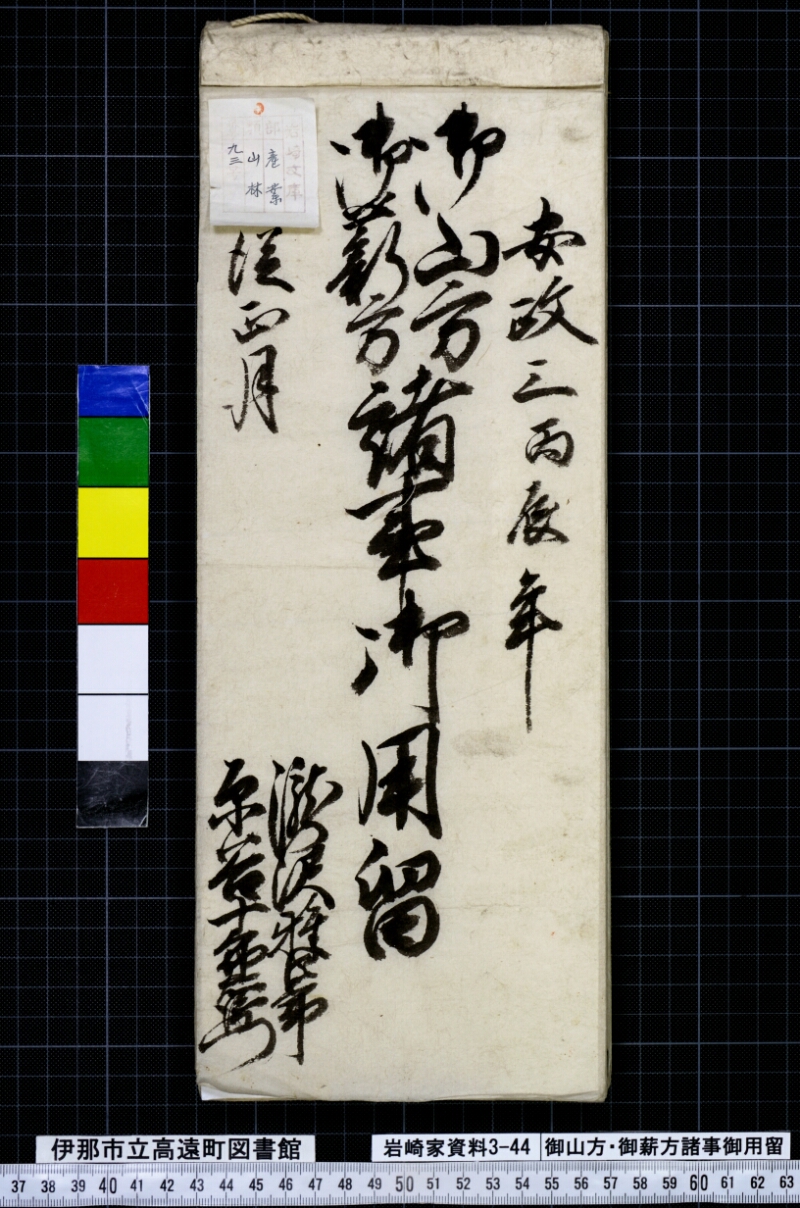 安政三丙辰年
御山方
御薪方
諸事御用留
従正月
瀧沢雅五郎
原
岩崎文庫
部 産業
山林
九三
伊那市立高遠町図書館
岩崎家資料3-44
御山方・御薪方諸事御用留
37 38 39 40 41 42 43 44 45 46 47 48 49 50 51 52 53 54 55 56 57 58 59 60 61 62 63